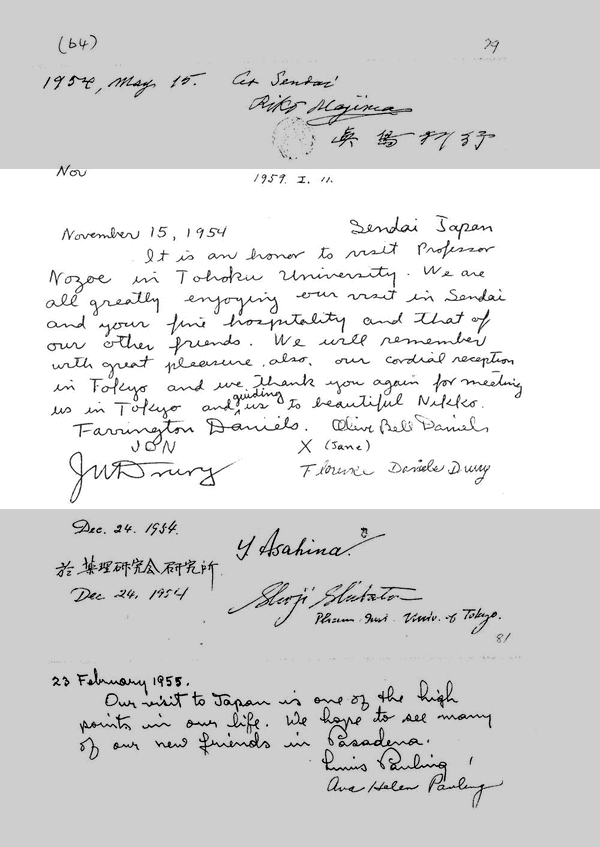 (64) 79
1954, May 15. At Sendai
Riko Majima
眞島利行
Nov
1959. I. 11.
November 15, 1954 Sendai Japan
It is an honor to visit Professor
Nozoe in Tohoku University. We are
all greatly enjoying our visit in Sendai
and your fine hospitality and that of
our other friends. We will remember
with great pleasure, also, our cordial reception
in Tokyo and we thank you again for meeting
us in Tokyo and guiding us to beautiful Nikko.
Farrington Daniels. Olive Bell Daniels
JON X (Jane)
JWDrury Florence Daniels Drury
Dec. 24. 1954. Y Asahina.
於 薬理研究会研究所
Dec. 24, 1954 Shoji Shibata
Pharm. Inst. Univ. of Tokyo.
81
23 February 1955.
Our visit to Japan is one of the high
points in our life. We hope to see many
of our new friends in Pasadena.
Linus Pauling
Ava Helen Pauling